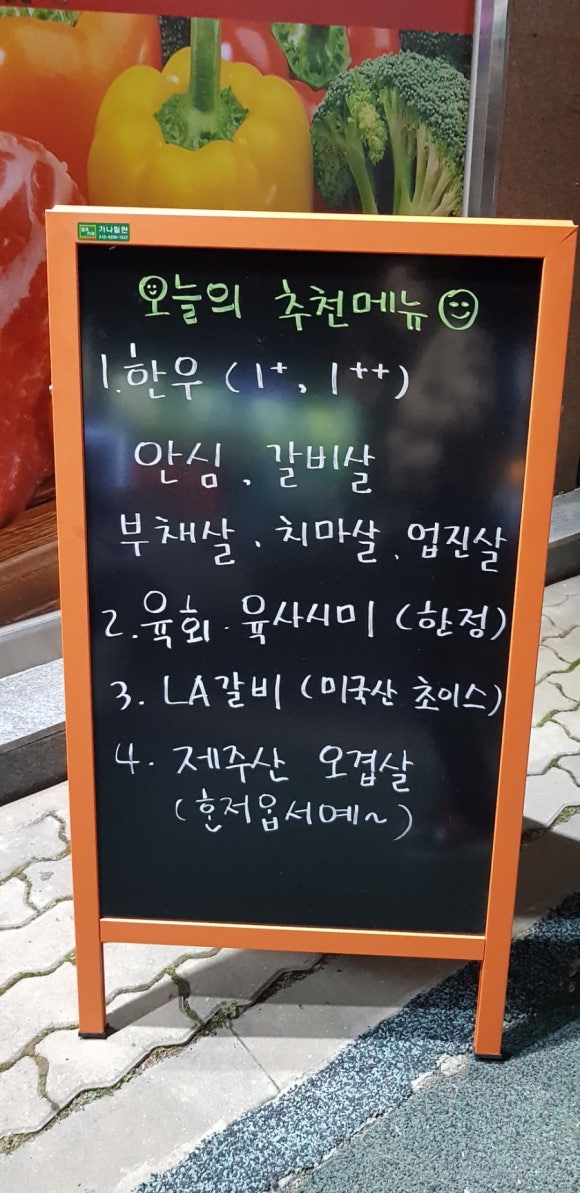 가나칠판
오늘의 추천메뉴
1. 한우 (1+, 1++)
안심, 갈비살
부채살, 치마살, 업진살
2. 육회·육사시미 (한정)
3. LA갈비 (미국산 초이스)
4. 제주산 오겹살
(혼저옵서예~)